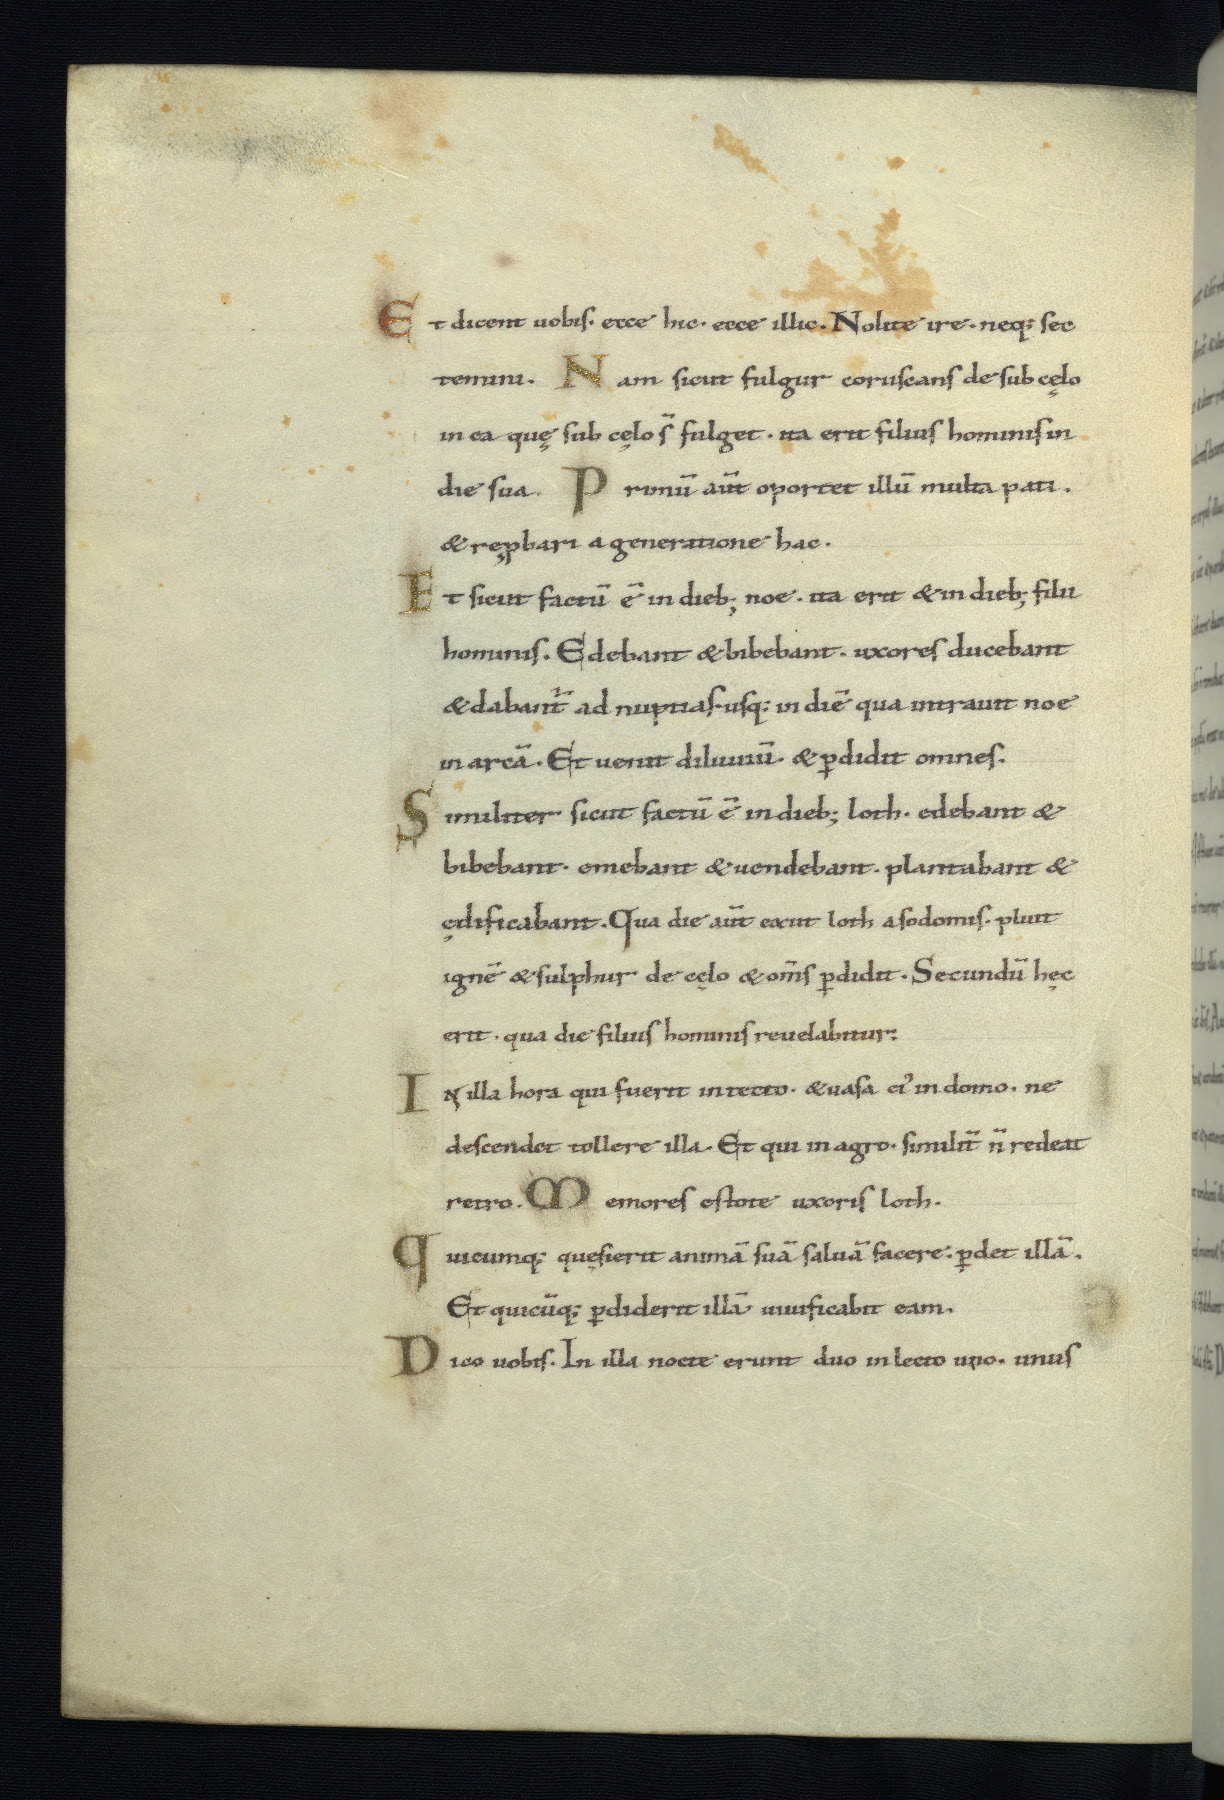 Et dicent uobis. ecce hic. ecce illic. Nolite ire. neq; sec
temini. Nam sicut fulgur coruscans de sub cęlo
in ea quę sub cęlo s̄ fulget. ita erit filius hominis in
die sua. Primū aūt oportet illū multa pati.
& reꝓbari a generatione hac.
Et sicut factū ē in dieb; noe. ita erit & in dieb; filii
hominis. Edebant & bibebant. uxores ducebant
& dabant̄ ad nuptias. usq; in diē qua intrauit noe
in arcā. Et uenit diluuiū. & ꝑdidit omnes.
Similiter sicut factū ē in dieb; loth. edebant &
bibebant. emebant & uendebant. plantabant &
ędificabant. Qua die aūt exiit loth a sodomis. pluit
ignē & sulphur de cęlo & om̄s ꝑdidit. Secundū hęc
erit. qua die filius hominis reuelabitur:
In illa hora qui fuerit in tecto. & uasa ei᾽ in domo. ne
descendet tollere illa. Et qui in agro. similit̄ n̄ redeat
retro. Memores estote uxoris loth.
Quicumq; quęsierit animā suā saluā facere. ꝑdet illā.
Et quicūq; ꝑdiderit illā uiuificabit eam.
Dico uobis. In illa nocte erunt duo in lecto uno. unus